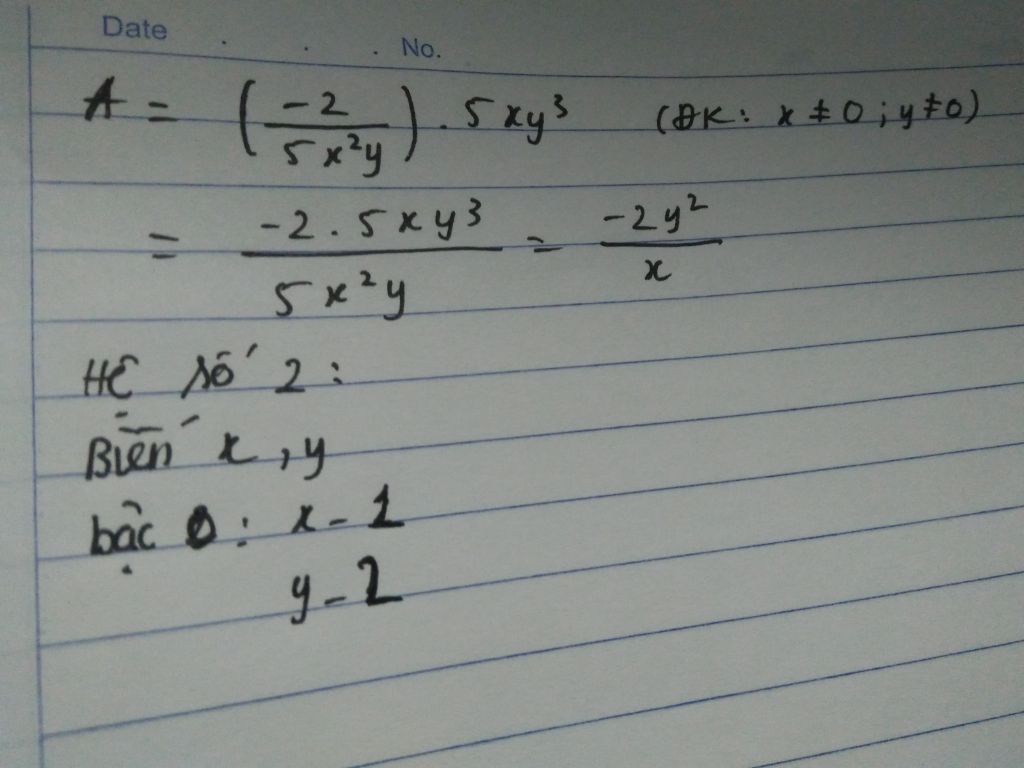 Date . . . No.
A = (-2 / 5x²y) . 5xy³ (ĐK: x ≠ 0 ; y ≠ 0)
= -2 . 5xy³ / 5x²y = -2y² / x
Hệ số 2 :
Biến x , y
bậc 0 : x - 1
y - 2